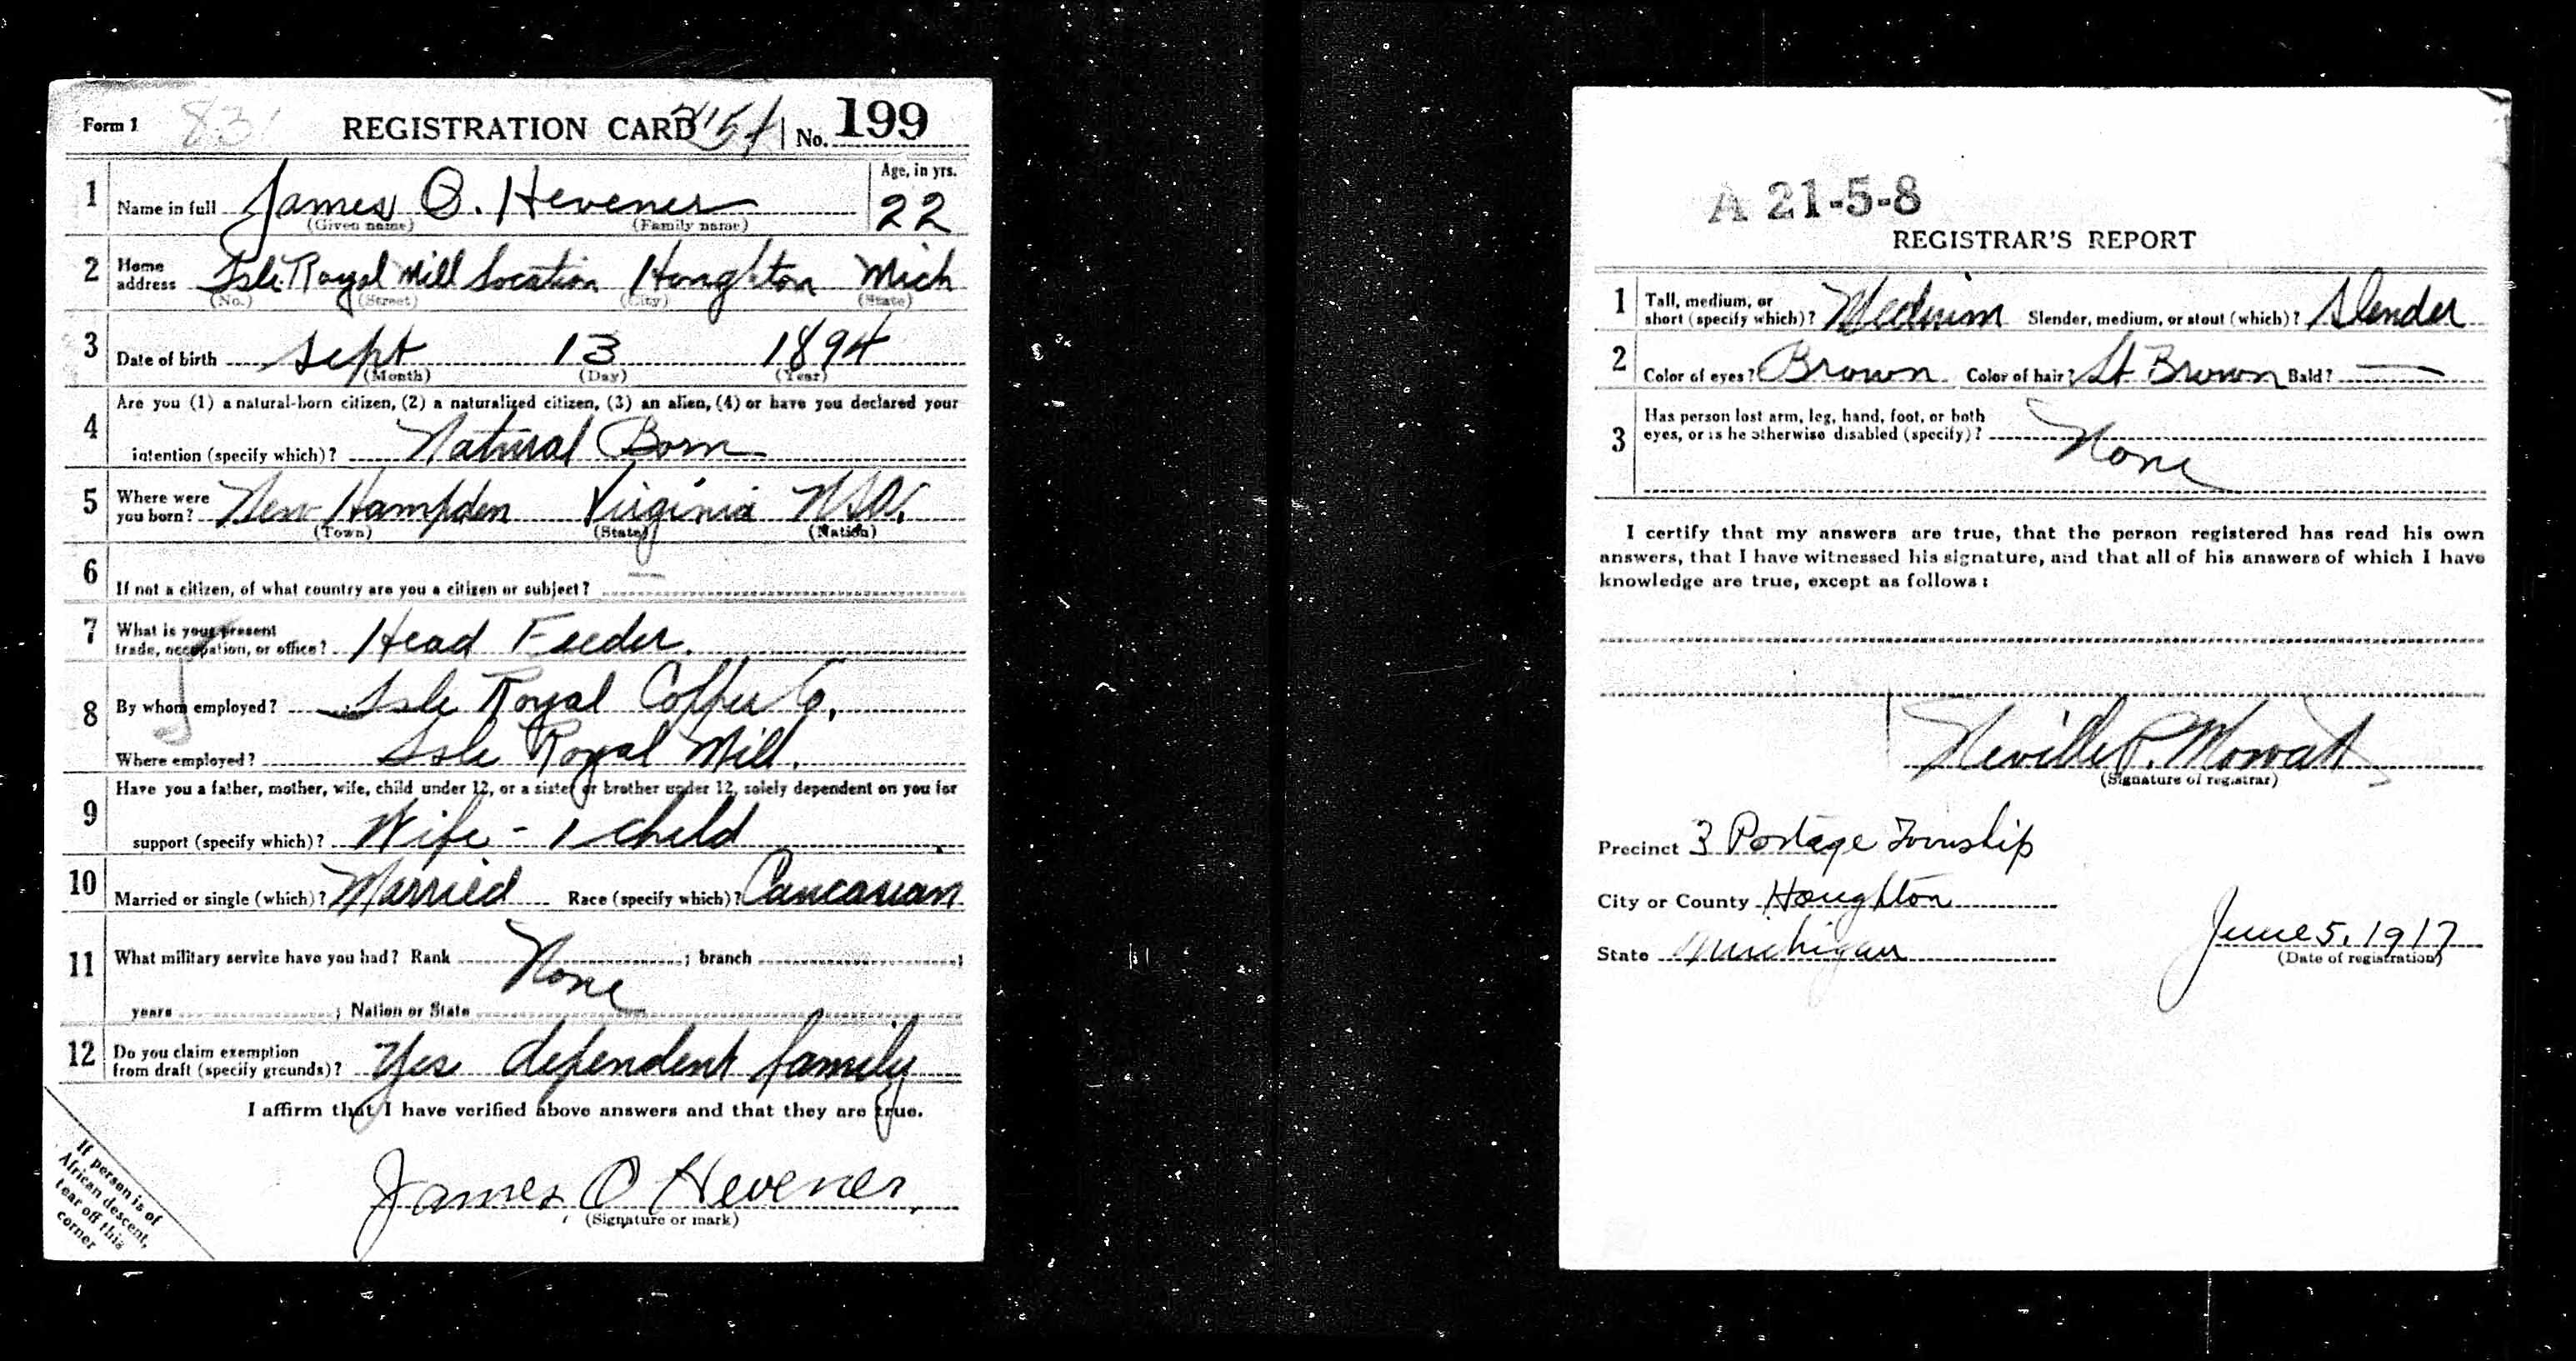 Form 1 831 REGISTRATION CARD No. 199
1 Name in full James O. Hevener Age, in yrs. 22
(Given name) (Family name)
2 Home address Isle Royal Mill Location Houghton Mich
(No.) (Street) (City) (State)
3 Date of birth Sept 13 1894
(Month) (Day) (Year)
4 Are you (1) a natural-born citizen, (2) a naturalized citizen, (3) an alien, (4) or have you declared your
intention (specify which)? Natural Born
5 Where were you born? New Hampden Virginia USA.
(Town) (State) (Nation)
6 If not a citizen, of what country are you a citizen or subject? —
7 What is your present
trade, occupation, or office? Head Feeder.
8 By whom employed? Isle Royal Copper Co.
Where employed? Isle Royal Mill.
9 Have you a father, mother, wife, child under 12, or a sister or brother under 12, solely dependent on you for
support (specify which)? Wife - 1 child
10 Married or single (which)? Married Race (specify which)? Caucasian
11 What military service have you had? Rank None ; branch ;
years ; Nation or State
12 Do you claim exemption
from draft (specify grounds)? Yes dependent family
I affirm that I have verified above answers and that they are true.
James O Hevener
(Signature or mark)
If person is of
African descent,
tear off this
corner
A 21-5-8
REGISTRAR'S REPORT
1 Tall, medium, or
short (specify which)? Medium Slender, medium, or stout (which)? Slender
2 Color of eyes? Brown Color of hair? Lt Brown Bald? —
3 Has person lost arm, leg, hand, foot, or both
eyes, or is he otherwise disabled (specify)? None
I certify that my answers are true, that the person registered has read his own
answers, that I have witnessed his signature, and that all of his answers of which I have
knowledge are true, except as follows:
Neville P. Mowatt
(Signature of registrar)
Precinct 3 Portage Township
City or County Houghton
State Michigan
June 5, 1917
(Date of registration)